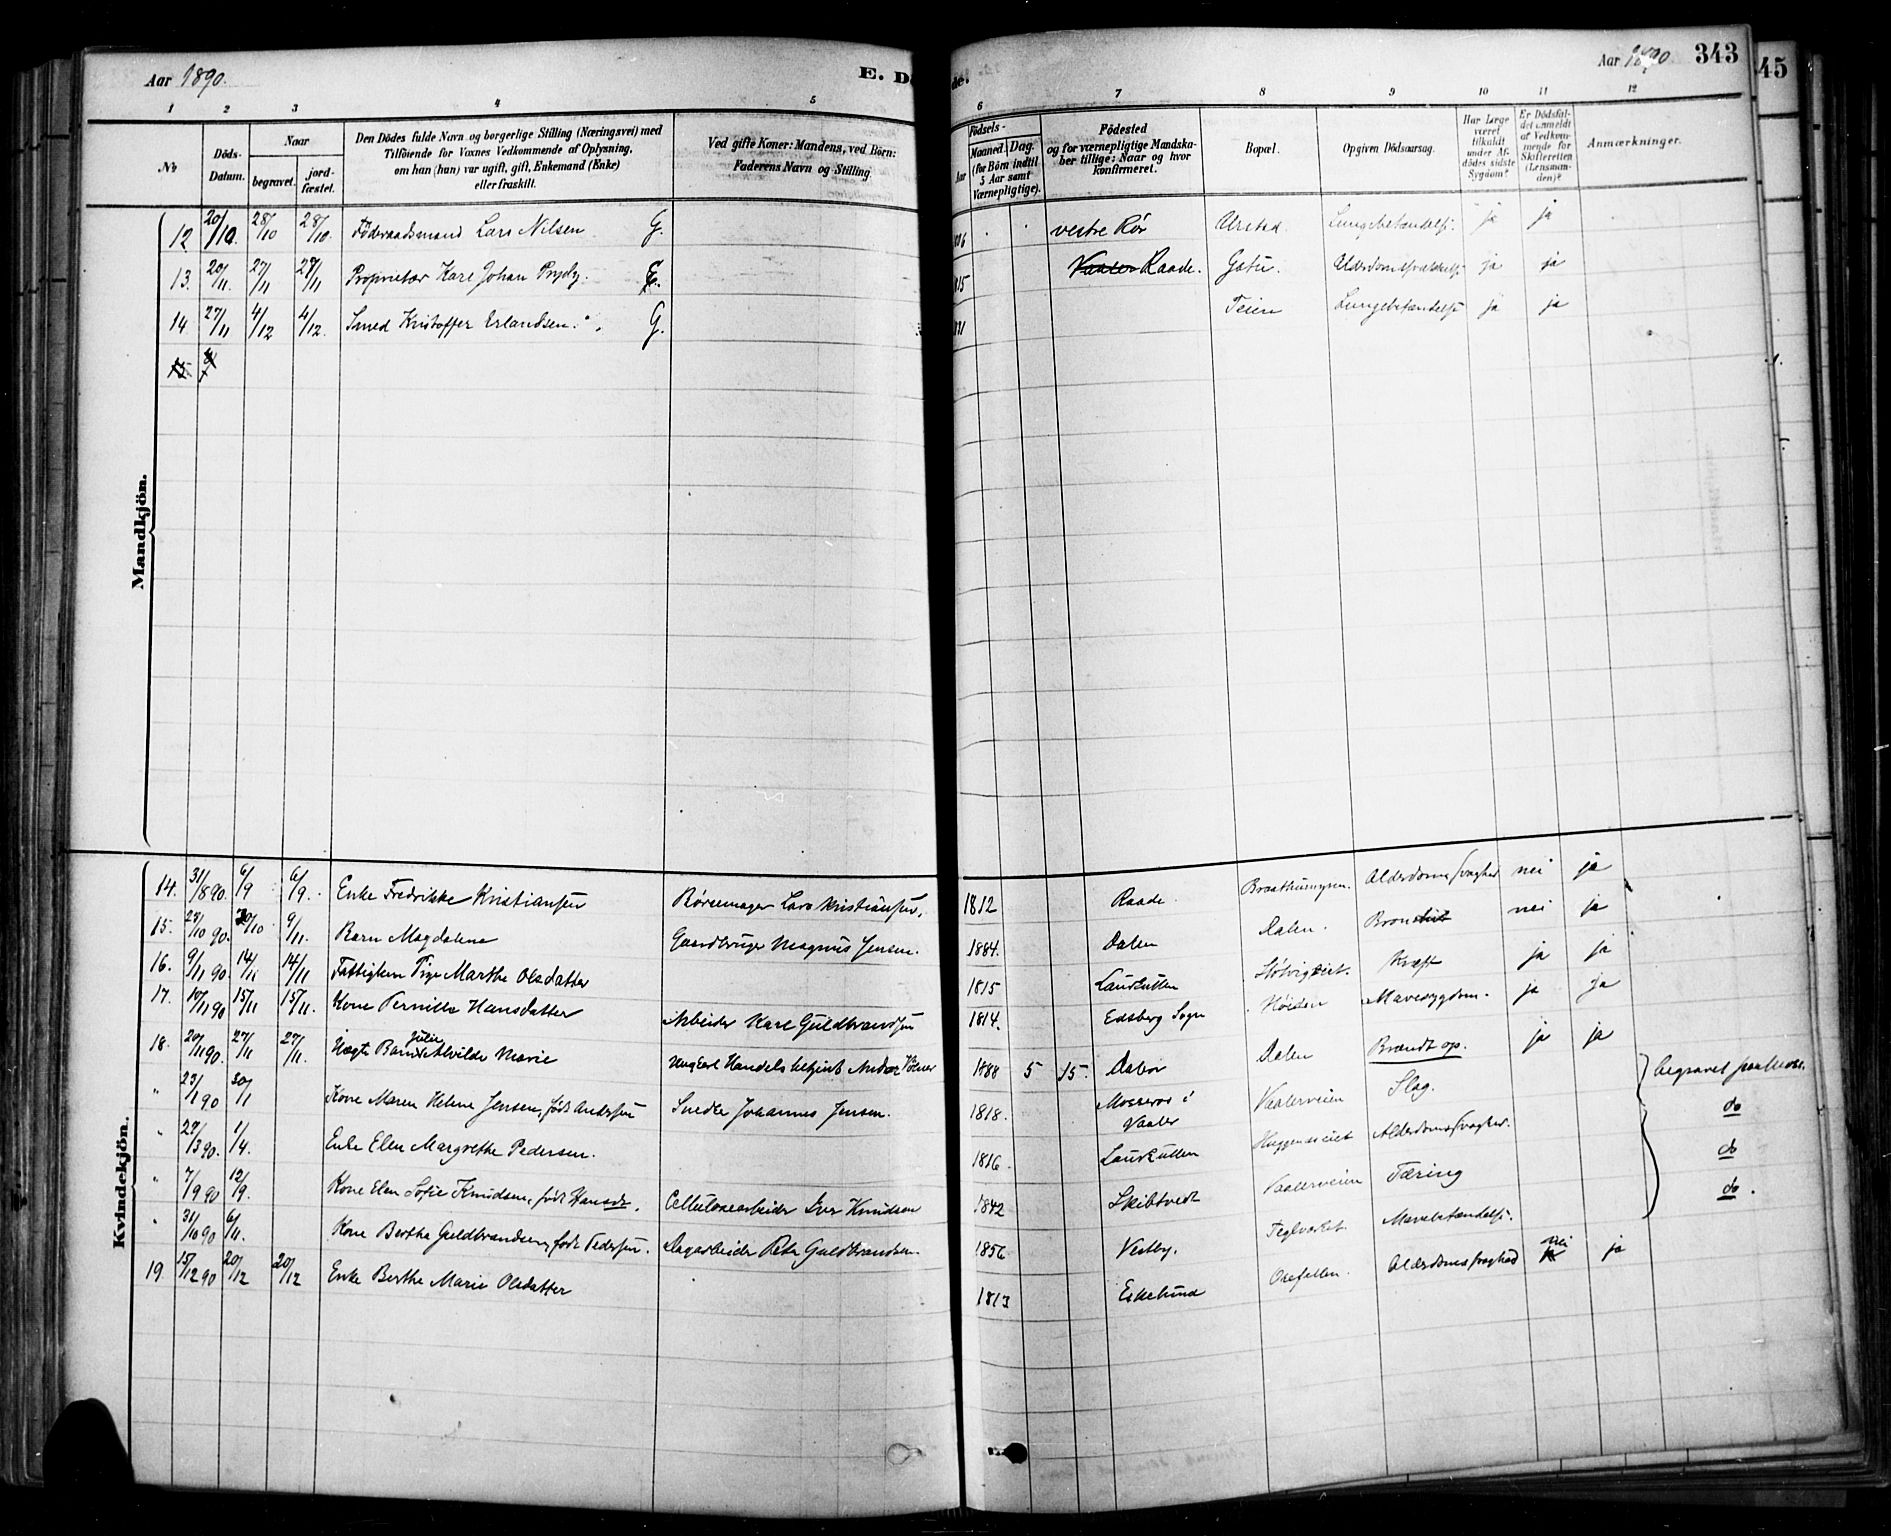 Aar 1890.
E. Dö
de.
Aar 1890
343
45
1 2 3 4 5 6 7 8 9 10 11 12
No
Döds-Datum.
Naar
begravet.
jord-fæstet.
Den Dödes fulde Navn og borgerlige Stilling (Næringsvei) med
Tilföiende for Voxnes Vedkommende af Oplysning,
om han (hun) var ugift, gift, Enkemand (Enke)
eller fraskilt.
Ved gifte Koner: Mandens, ved Börn:
Faderens Navn og Stilling.
Födsels-
Aar
Maaned. Dag.
(for Börn indtil
5 Aar samt
Værnepligtige).
Födested
og for værnepligtige Mandska-
ber tillige: Naar og hvor
konfirmeret.
Bopæl.
Opgiven Dödsaarsag.
Har Læge
været
tilkaldt
under Af-
dödes sidste
Sygdom?
Er Dödsfal-
det anmeldt
af Vedkom-
mende for
Skifteretten
(Lensman-
den)?
Anmærkninger.
Mandkjön.
12 20/10. 28/10 28/10. Föderaadsmand Lars Nilsen G. vestre Rör Lungebetændelse ja ja
13. 20/11. 27/11 27/11 Proprietær Karl Johan Prydz. 1815 Vaaler Raade. ja ja
14 27/11 4/12 4/12. Smed Kristoffer Erlandsen. G. Teien Lungebetændelse ja ja
15
Kvindekjön.
14. 31/8 90. 6/9 6/9. Enke Fredrikke Kristiansen Börsemager Lars Kristiansen. 1812 Raade. Alderdomssvaghed nei ja
15. 27/10 90. 30/10 9/11. Barn Magdalena Gaardbruger Magnus Jensen. 1884. Dalen Dalen. nei ja
16. 9/11 90 14/11 14/11 Fattiglem Pige Marthe Olsdatter 1815 Kræft ja ja
17. 10/11 90 15/11 15/11. Kone Pernille Hansdatter Arbeider Karl Guldbrandsen 1814. Edsberg Sogn Höiden Mavesygdom. ja ja
18. 20/11 90. 27/11 27/11. Uægte Barn Julie Alvilde Marie Ungkarl Handelsbetjent 1888 5 15. Dalen Dalen Brændt op. ja ja
" 23/1 90 30/1 Kone Maren Helene Jensen, födt Andersen Snedker Johannes Jensen. 1818. Mosseros i Vaaler Vaalerveien Slag. begravet paa Moss.
" 27/3 90. 1/4. Enke Elen Margrethe Pedersen. 1816. Alderdomssvaghed. do
" 7/9 90 12/9. Kone Elen Sofie Knudsen, födt Hansdt. Cellulosearbeider Iver Knudsen 1842 Skibtvedt Vaalerveien Tæring do
" 31/10 90 6/11. Kone Berthe Guldbrandsen, födt Pedersen. Dagarbeider Peter Guldbrandsen. 1856 Vestby. Teglverket Mavebetændelse. do.
19. 15/12 90 20/12 20/12 Enke Berthe Marie Olsdatter 1813 Eskelund Alderdomssvaghed nei ja